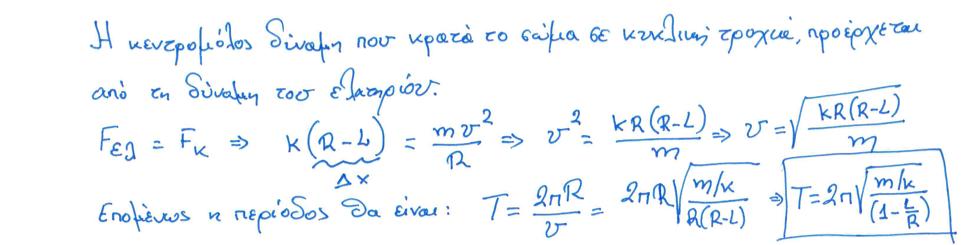 Η κεντρομόλος δύναμη που κρατά το σώμα σε κυκλική τροχιά, προέρχεται
από τη δύναμη του ελατηρίου.
F_{ελ} = F_κ ⇒ k(R-L) = \frac{mv^2}{R} ⇒ v^2 = \frac{kR(R-L)}{m} ⇒ v = \sqrt{\frac{kR(R-L)}{m}}
Δx
Επομένως η περίοδος θα είναι: T = \frac{2πR}{v} = 2πR\sqrt{\frac{m/k}{R(R-L)}} ⇒ T = 2π\sqrt{\frac{m/k}{(1-\frac{L}{R})}}